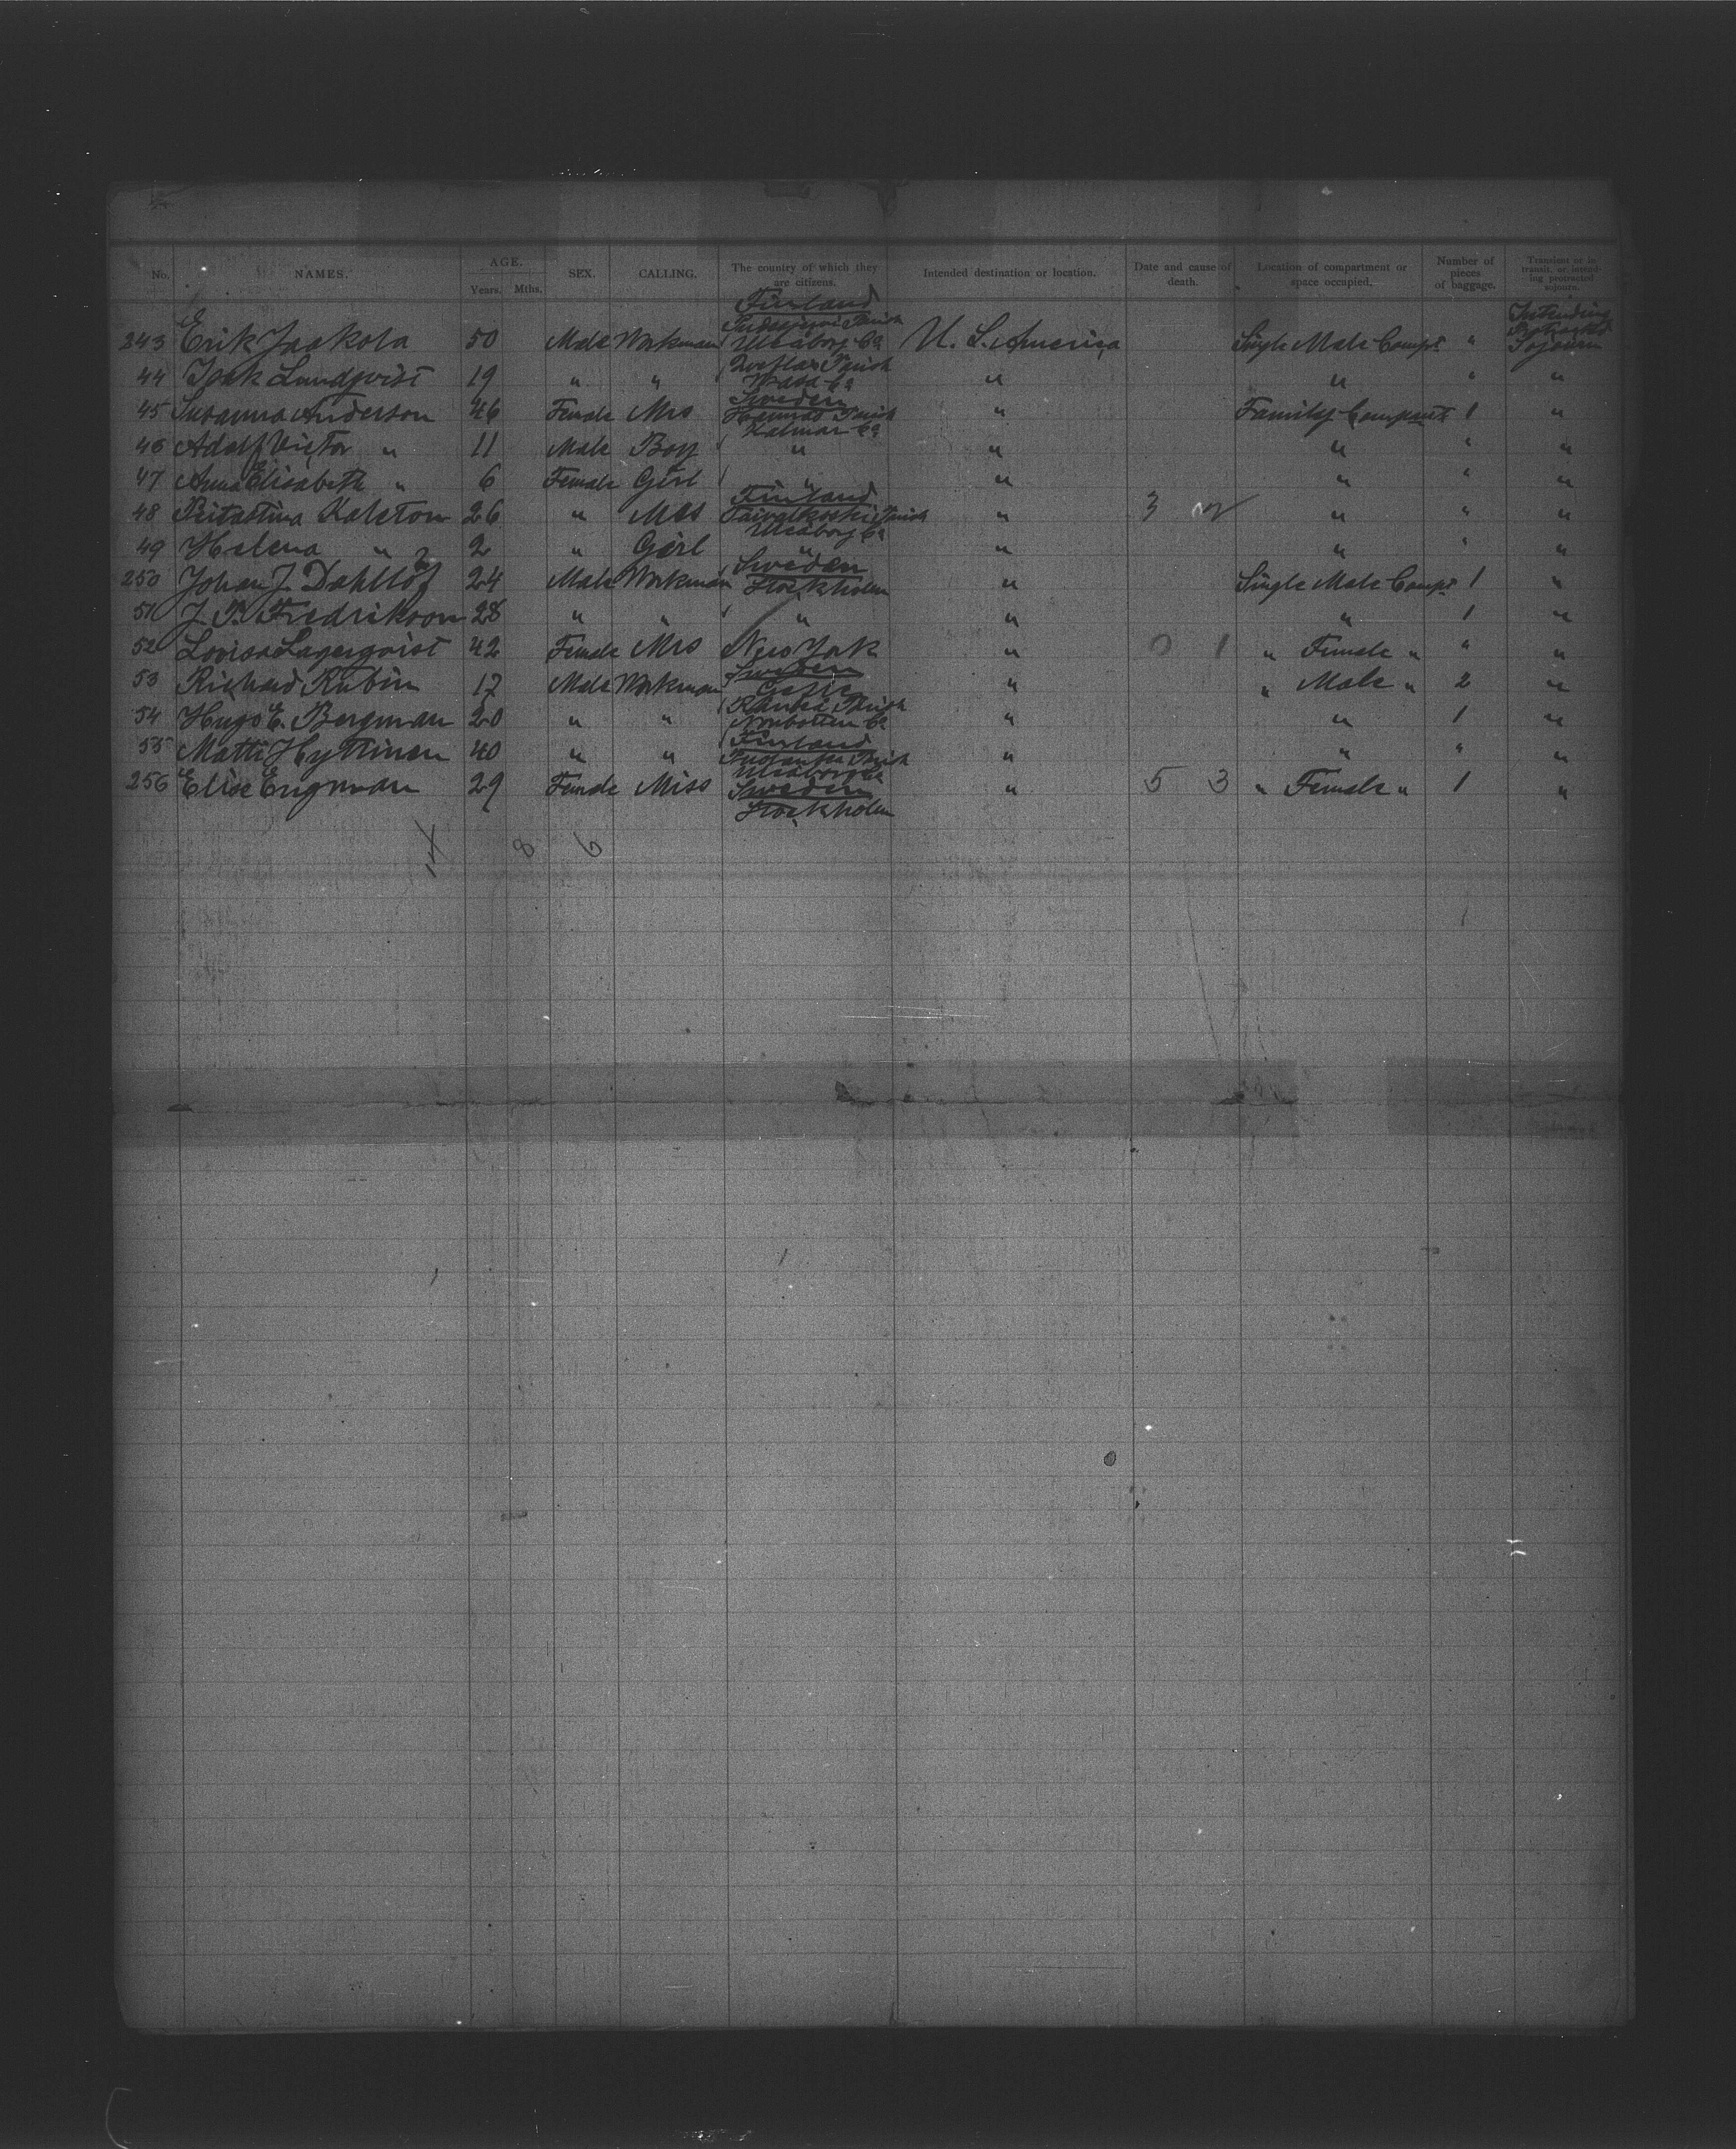 No. NAMES. AGE. Years. Mths. SEX. CALLING. The country of which they are citizens. Intended destination or location. Date and cause of death. Location of compartment or space occupied. Number of pieces of baggage. Transient or in transit, or intending protracted sojourn.
243 Erik Jaakola 50 Male Workman Finland Parish Uleåborg Co U. S. America Single Male Compt " Intending Protracted Sojourn
44 Isak Lundqvist 19 " " Parish Wasa Co " " " "
45 Susanna Anderson 46 Female Mrs Sweden Parish Kalmar Co " Family Compmt 1 "
46 Adolf Victor " 11 Male Boy " " " " "
47 Anna Elisabeth " 6 Female Girl " " " " "
48 26 " Mrs Finland Taivalkoski Parish Uleåborg Co " 3 " " "
49 Helena " 2 " Girl " " " " "
250 Johan J. Dahllöf 24 Male Workman Sweden Stockholm " Single Male Compt 1 "
51 J. P. Fredrikson 28 " " " " " 1 "
52 Lovisa Lagerqvist 42 Female Mrs New York " 0 1 " Female " " "
53 Richard Rubin 17 Male Workman Sweden Gefle " " Male " 2 "
54 Hugo E. Bergman 20 " " Parish Norrbotten Co " " 1 "
55 Matti Hyttinen 40 " " Finland Parish Uleåborg Co " " " "
256 Elise Engman 29 Female Miss Sweden Stockholm " 5 3 " Female " 1 "
14 8 6